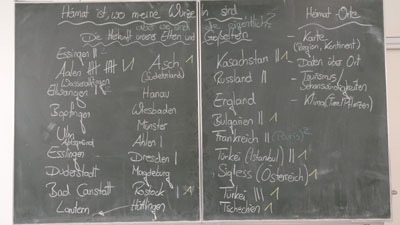 Heimat ist, wo meine Wurzeln sind
Die Herkunft unserer Eltern und Großeltern
Essingen II
Aalen
Wasseralfingen
Ellwangen
Bopfingen
Ulm
Essingen
Duderstadt
Bad Canstatt
Lautern
Asch 1
(Sudetenland)
Hanau
Wiesbaden
Münster
Ahlen I
Dresden I
Magdeburg
Rostock I 1
Hüttlingen
Kasachstan II 1
Russland II
England
Bulgarien II 1
Frankreich II (Paris)
Türkei (Istanbul) II 1
Sigless (Österreich) 1
Türkei III 1
Tschechien 1
Heimat-Orte
- Karte
(Region, Kontinent)
- Daten über Ort
- Tourismus/
Sehenswürdigkeiten
- Klima (Tiere/Pflanzen)